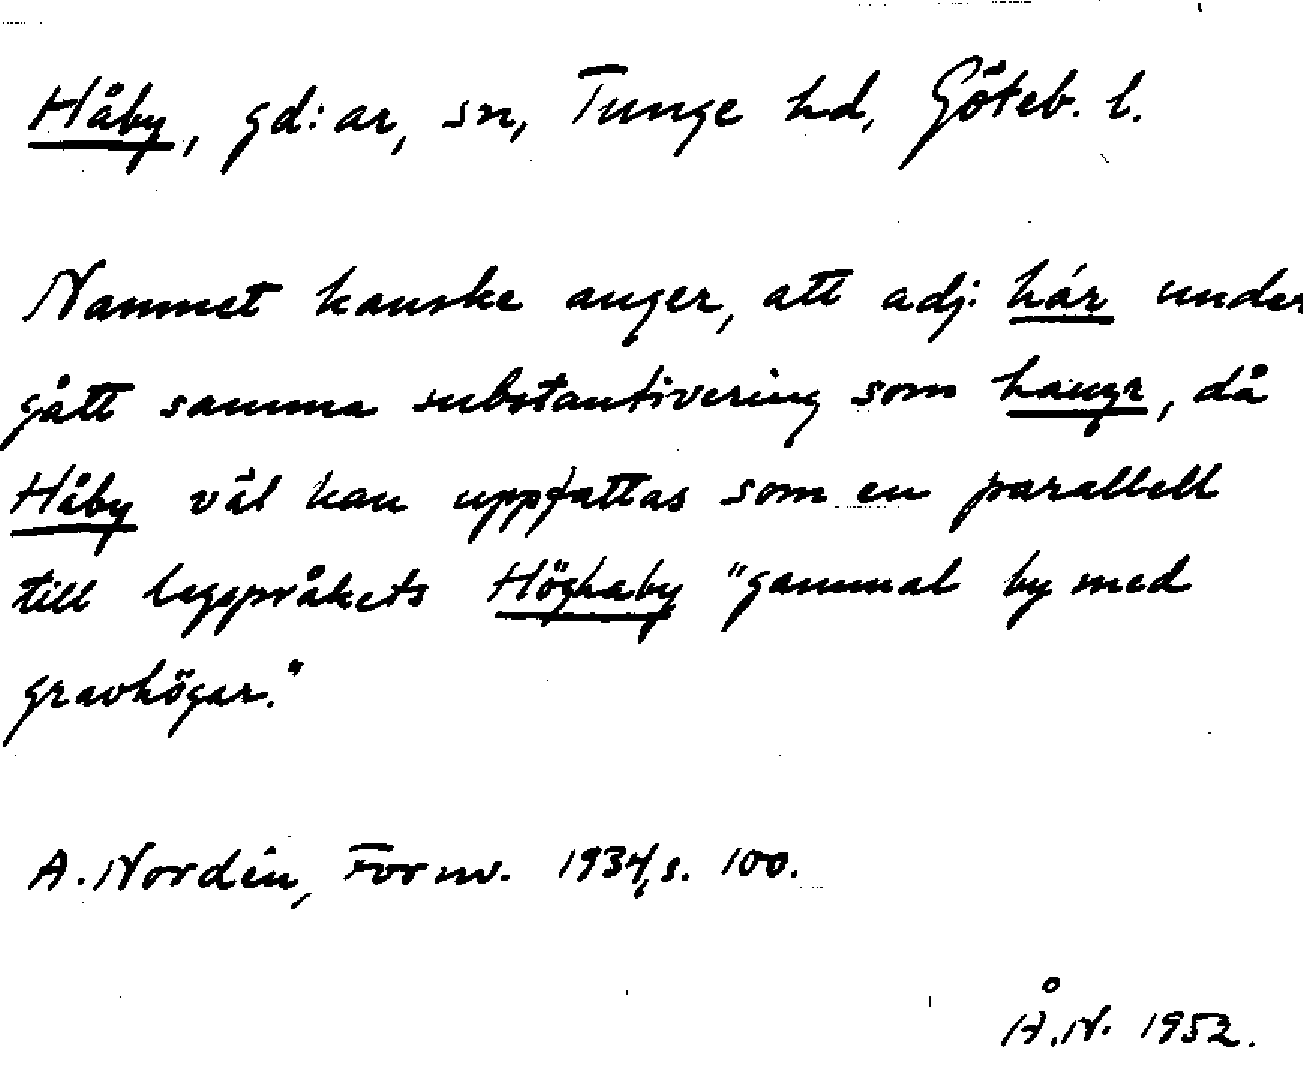 Håby, gd:ar, sn, Tunge hd, Göteb. l.
Namnet kanske anger, att adj: hár under
gått samma substantivering som haugr, då
Håby väl kan uppfattas som en parallell
till lagspråkets Höghaby "gammal by med
gravhögar."
A. Nordén, Fornv. 1934, s. 100.
Å.N. 1952.